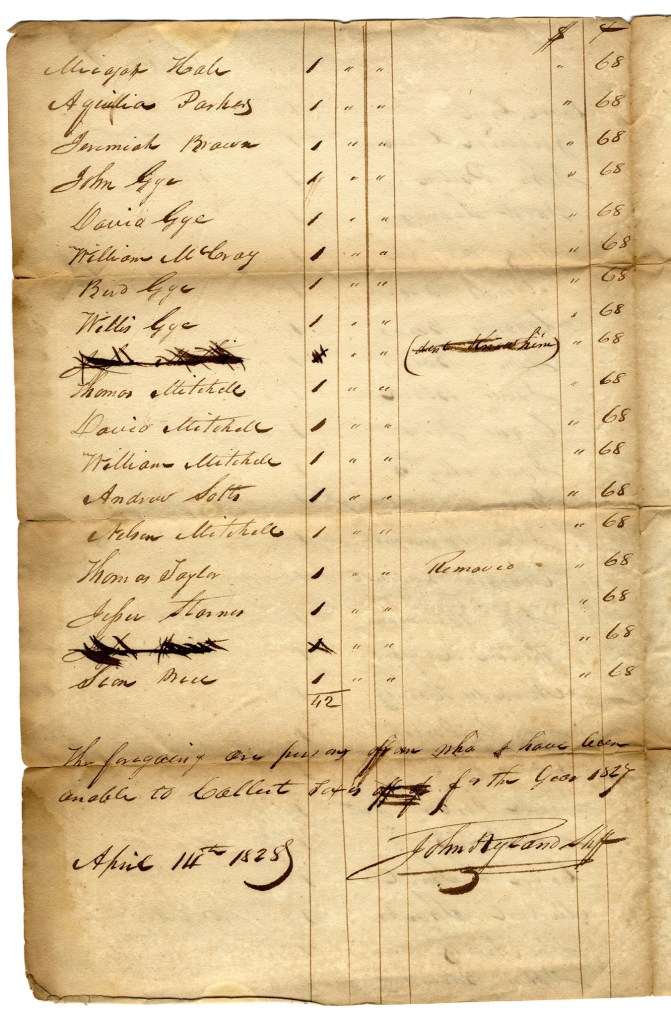 $ ¢
Micajah Hale 1 " " " 68
Aquillia Parkes 1 " " " 68
Jeremiah Brown 1 " " " 68
John Gye 1 " " " 68
David Gye 1 " " " 68
William McCray 1 " " " 68
Bird Gye 1 " " " 68
Willis Gye 1 " " " 68
1 " " (dont Know him) " 68
Thomas Mitchell 1 " " " 68
David Mitchell 1 " " " 68
William Mitchell 1 " " " 68
Andrew 1 " " " 68
Nelson Mitchell 1 " " " 68
Thomas Taylor 1 " " Removed " 68
Jesse Starnes 1 " " " 68
1 " " " 68
1 " " " 68
42
The foregoing are persons off on who I have been
unable to Collect Taxes for the Year 1827
April 14th 1828 John Ryland Shff